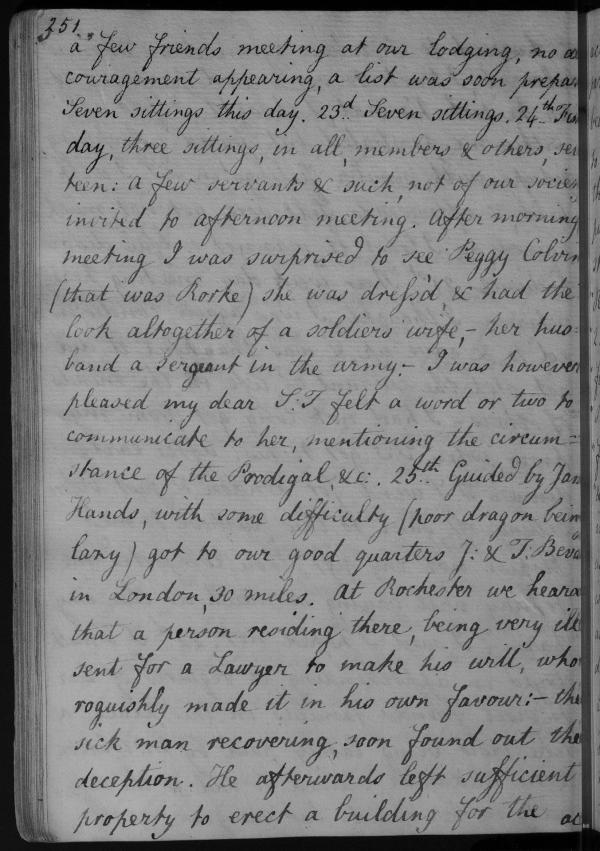 251
a few friends meeting at our lodging, no
couragement appearing, a list was soon prepa
Seven sittings this day. 23d. Seven sittings. 24th.
day, three sittings, in all, members & others, se
teen: a few servants & such, not of our socie
invited to afternoon meeting. After morning
meeting I was surprised to see Peggy Colvi
(that was Rorke) she was dress'd, & had the
look altogether of a soldiers wife,- her hus=
band a sergeant in the army:- I was however
pleased my dear S:T felt a word or two to
communicate to her, mentioning the circum=
stance of the Prodigal, &c:. 25th. Guided by
Hands, with some difficulty (poor dragon bein
lazy) got to our good quarters J: & T: Beva
in London, 30 miles. At Rochester we heard
that a person residing there, being very ill
sent for a Lawyer to make his will, who
roguishly made it in his own favour:- the
sick man recovering, soon found out the
deception. He afterwards left sufficient
property to erect a building for the